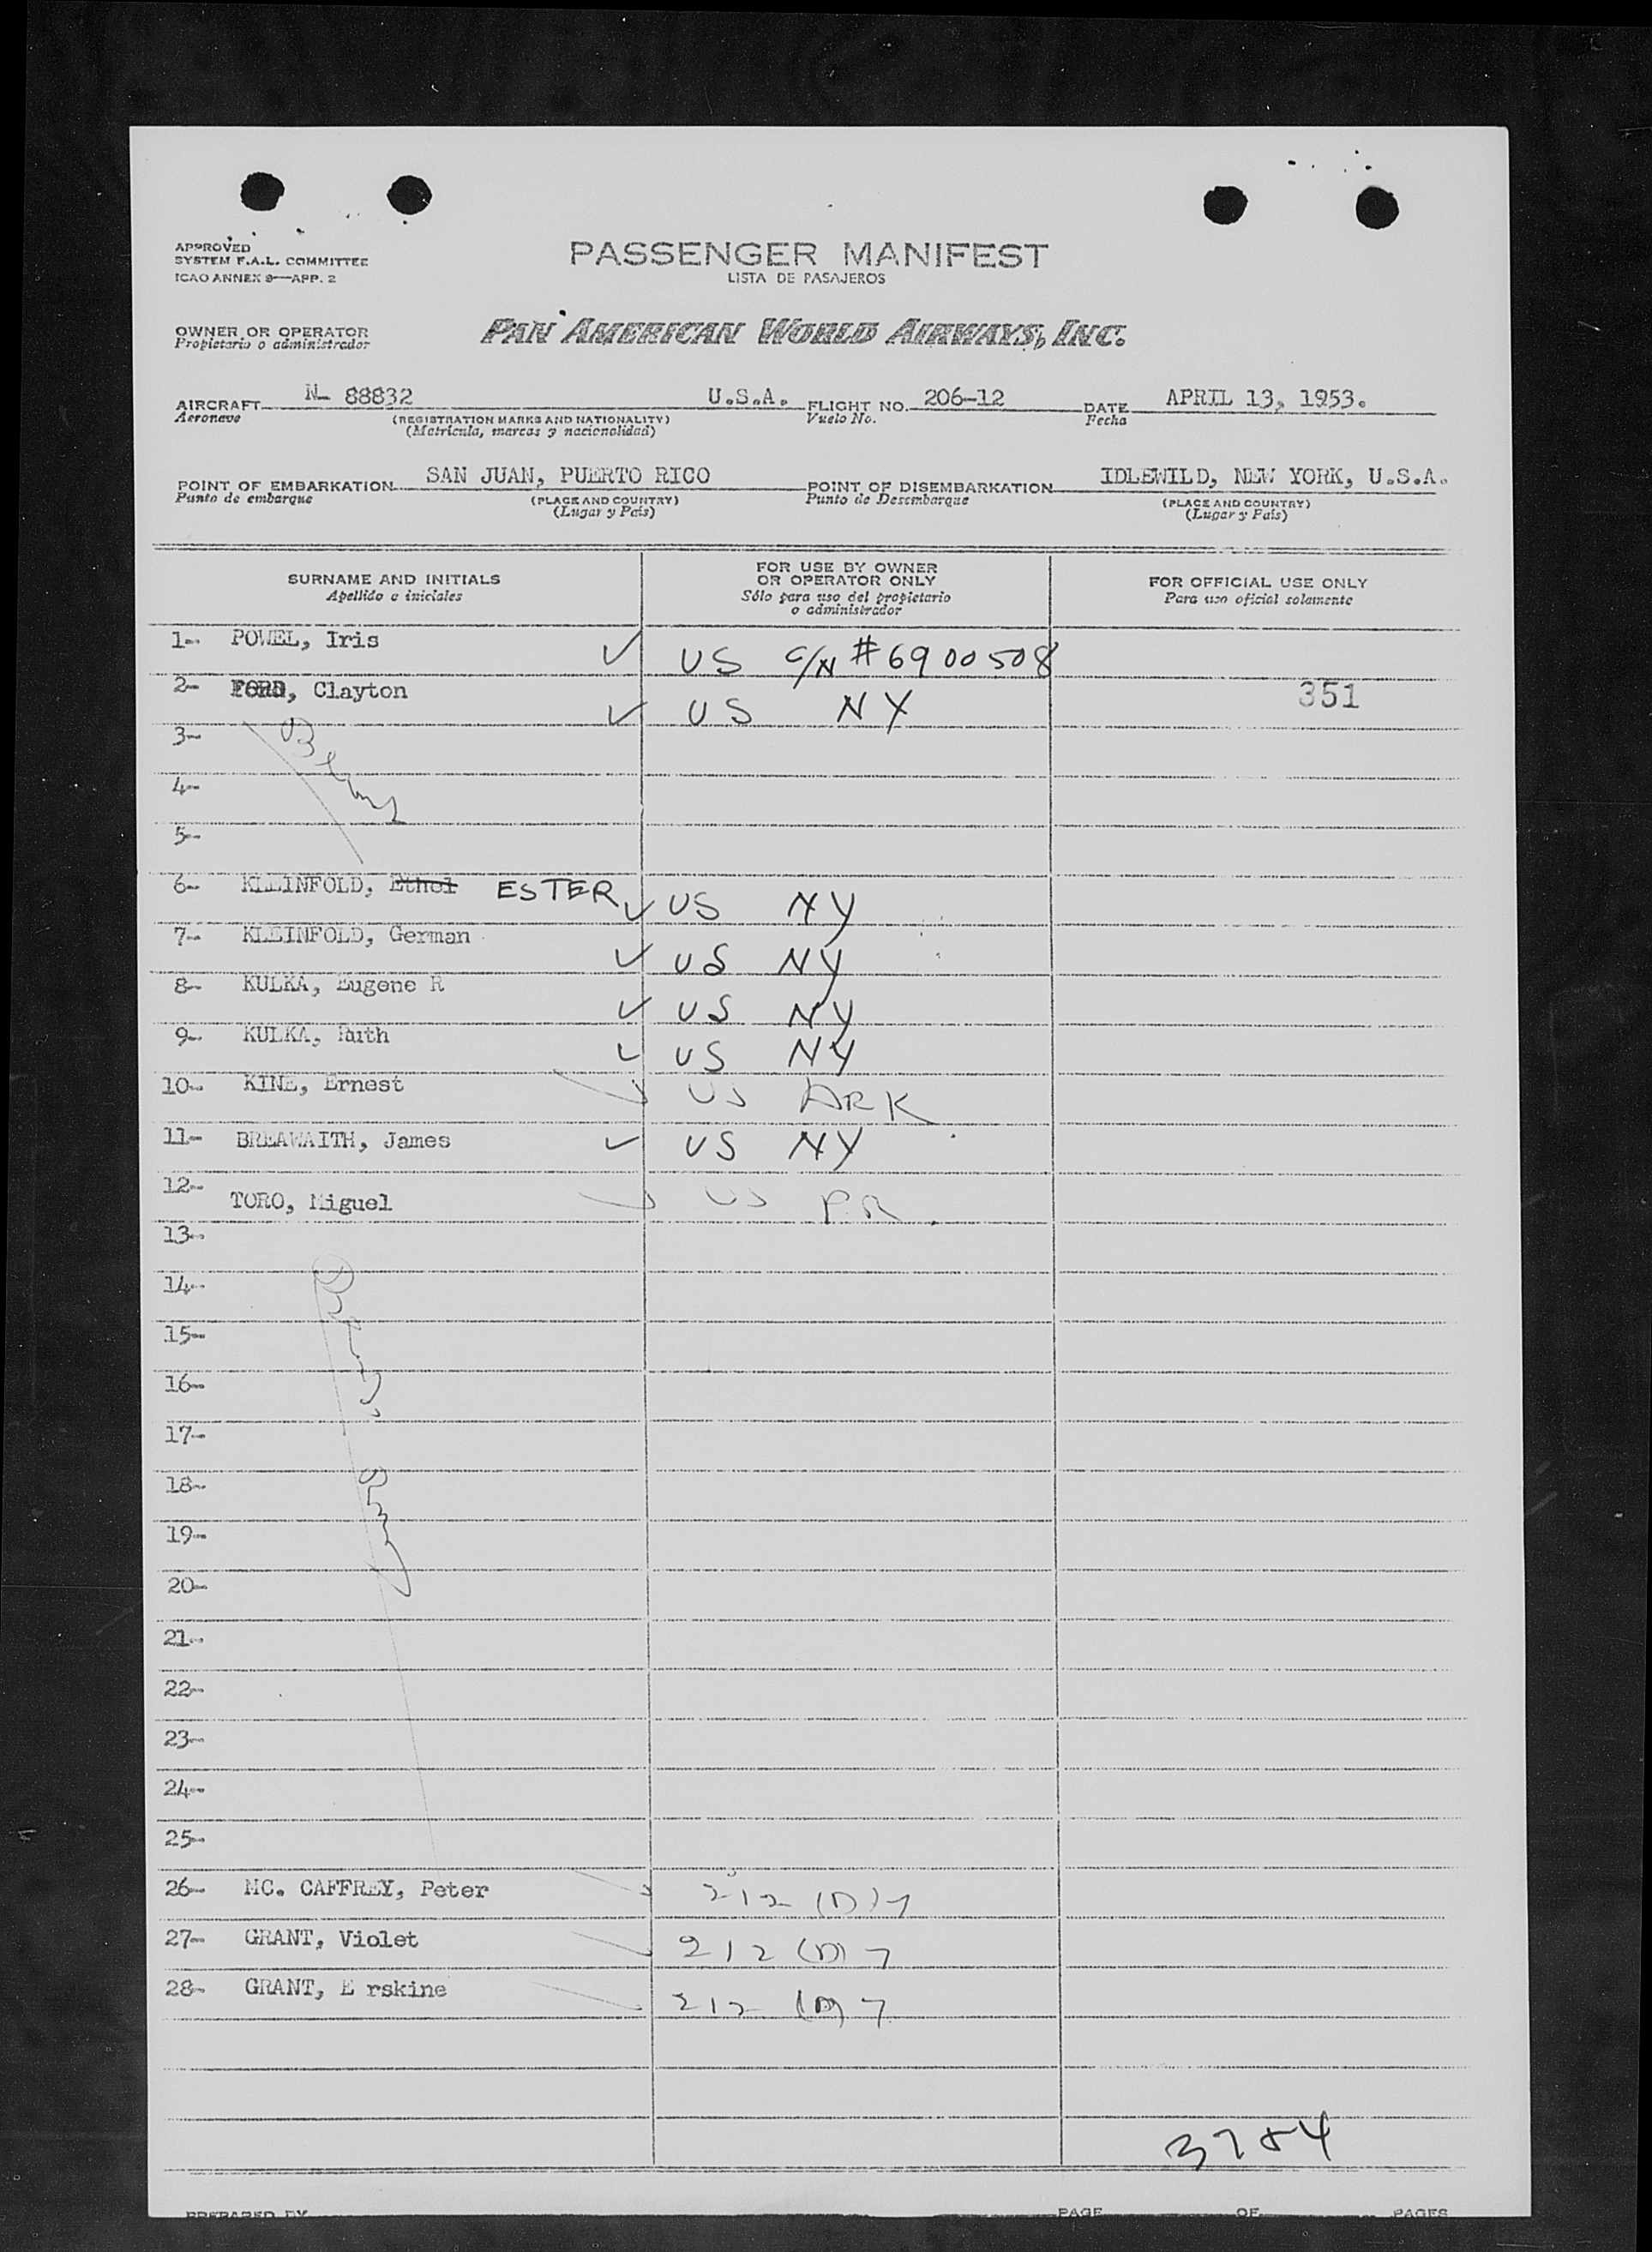 APPROVED
SYSTEM F.A.L. COMMITTEE
ICAO ANNEX 9—APP. 2
PASSENGER MANIFEST
LISTA DE PASAJEROS
OWNER OR OPERATOR
Propietario o administrador
PAN AMERICAN WORLD AIRWAYS, INC.
AIRCRAFT N- 88832 U.S.A. FLIGHT NO. 206-12 DATE APRIL 13, 1953.
Aeronave (REGISTRATION MARKS AND NATIONALITY) Vuelo No. Fecha
(Matrícula, marcas y nacionalidad)
POINT OF EMBARKATION SAN JUAN, PUERTO RICO POINT OF DISEMBARKATION IDLEWILD, NEW YORK, U.S.A.
Punto de embarque (PLACE AND COUNTRY) Punto de Desembarque (PLACE AND COUNTRY)
(Lugar y País) (Lugar y País)
SURNAME AND INITIALS
Apellido e iniciales
FOR USE BY OWNER
OR OPERATOR ONLY
Sólo para uso del propietario
o administrador
FOR OFFICIAL USE ONLY
Para uso oficial solamente
1- POWEL, Iris ✓ US C/N #6900508
2- FORD, Clayton ✓ US NY 351
3-
4-
5-
6- KLEINFOLD, Ethel ESTER ✓ US NY
7- KLEINFOLD, German ✓ US NY
8- KULKA, Eugene R ✓ US NY
9- KULKA, Ruth ✓ US NY
10- KINE, Ernest US ARK
11- BREAWAITH, James ✓ US NY
12- TORO, Miguel US P.R.
13-
14-
15-
16-
17-
18-
19-
20-
21-
22-
23-
24-
25-
26- MC. CAFFREY, Peter 212 (D) 7
27- GRANT, Violet 212 (D) 7
28- GRANT, E rskine 212 (D) 7
3784
PREPARED BY PAGE OF PAGES